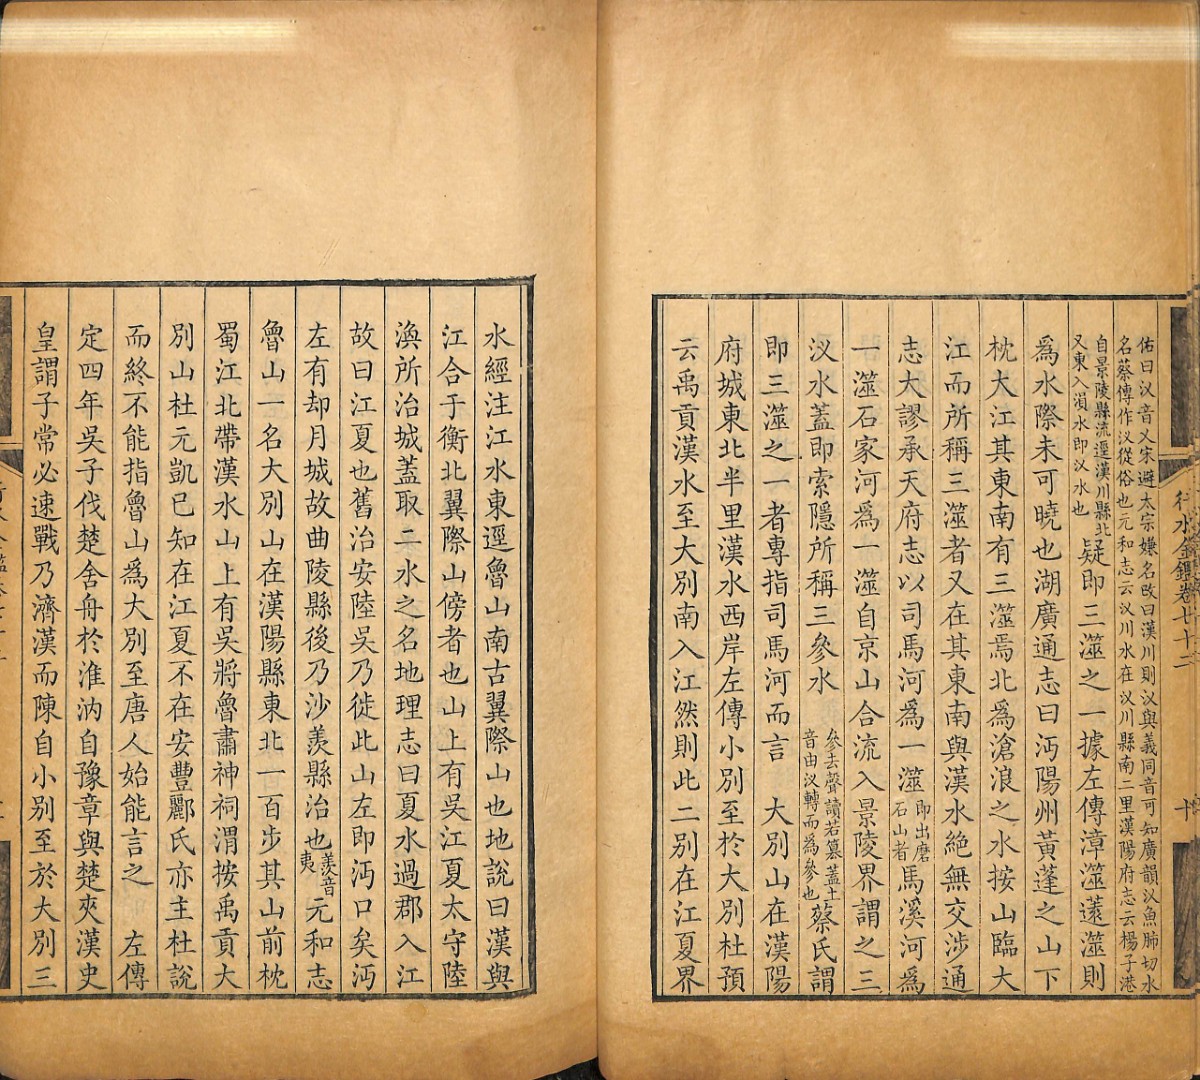 行水金鑑卷七十二
十
佑曰汊音乂宋避太宗嫌名改曰漢川則汊與義同音可知廣韻汊魚肺切水
名蔡傳作汊從俗也元和志云汊川水在汊川縣南二里漢陽府志云楊子港
自景陵縣流逕漢川縣北
又東入溳水即汊水也
疑即三澨之一據左傳漳澨薳澨則
爲水際未可曉也湖廣通志曰沔陽州黃蓬之山下
枕大江其東南有三澨焉北爲滄浪之水按山臨大
江而所稱三澨者又在其東南與漢水絕無交涉通
志大謬承天府志以司馬河爲一澨
即出磨
石山者
馬溪河爲
一澨石家河爲一澨自京山合流入景陵界謂之三
汊水蓋即索隱所稱三參水
參去聲讀若篸蓋土
音由汊轉而爲參也
蔡氏謂
即三澨之一者專指司馬河而言　大別山在漢陽
府城東北半里漢水西岸左傳小別至於大別杜預
云禹貢漢水至大別南入江然則此二別在江夏界
水經注江水東逕魯山南古翼際山也地說曰漢與
江合于衡北翼際山傍者也山上有吳江夏太守陸
渙所治城蓋取二水之名地理志曰夏水過郡入江
故曰江夏也舊治安陸吳乃徙此山左即沔口矣沔
左有却月城故曲陵縣後乃沙羨縣治也
羨音
夷
元和志
魯山一名大別山在漢陽縣東北一百步其山前枕
蜀江北帶漢水山上有吳將魯肅神祠渭按禹貢大
別山杜元凱已知在江夏不在安豐酈氏亦主杜說
而終不能指魯山爲大別至唐人始能言之　左傳
定四年吳子伐楚舍舟於淮汭自豫章與楚夾漢史
皇謂子常必速戰乃濟漢而陳自小別至於大別三